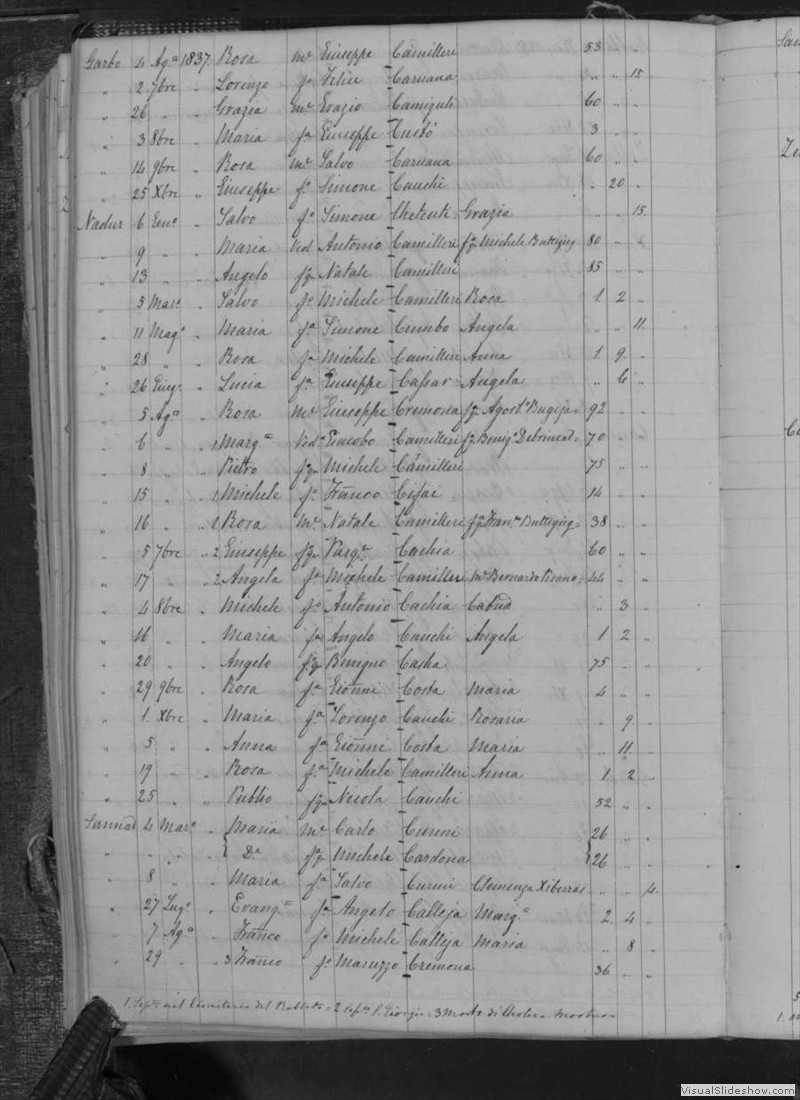 Garbo 4 Agº 1837 Rosa mᵉ Giuseppe Camilleri 53 " "
" 2 7bre " Lorenzo fº Felice Caruana " " 15
" 26 " " Grazia mᵉ Orazio Camiguti 60 " "
" 3 8bre " Maria fª Giuseppe Custò 3 " "
" 14 9bre " Rosa mᵉ Salvo Caruana 60 " "
" 25 Xbre " Giuseppe fº Simone Cauchi " 20 "
Nadur 6 Genº " Salvo fº Simone Chetcuti Grazia " " 15
" 9 " " Maria Ved Antonio Camilleri fq Michele Buttigieg 80 " "
" 13 " " Angelo fq Natale Camilleri 85 " "
" 5 Marº " Salvo fº Michele Camilleri Rosa 1 2 "
" 11 Magº " Maria fª Simone Cumbo Angela " " 11
" 28 " " Rosa fª Michele Camilleri Anna 1 9 "
" 26 Giugº " Lucia fª Giuseppe Cassar Angela " 6 "
" 5 Agº " Rosa mᵉ Giuseppe Cremona fq Agostº Bugeja 92 " "
" 6 " " 1 Margª Vedª Giacobo Camilleri fq Benigº 70 " "
" 8 " " Pietro fq Michele Camilleri 75 " "
" 15 " 1 Michele fº Franco Cifai 14 " "
" 16 " 1 Rosa mᵉ Natale Camilleri fq Franº Buttigieg 38 " "
" 5 7bre " 2 Giuseppe fq Pasqº Cachia 60 " "
" 17 " 2 Angela fª Michele Camilleri mᵉ Bernardo Pisano 44 " "
" 4 8bre " Michele fº Antonio Cachia " 3 "
" 16 " " Maria fª Angelo Cauchi Angela 1 2 "
" 20 " " Angelo fq Benigno Casha 75 " "
" 29 9bre " Rosa fª Gionni Costa Maria 4 " "
" 1 Xbre " Maria fª Lorenzo Cauchi Rosaria " 9 "
" 5 " " Anna fª Gionni Costa Maria " 11 "
" 19 " " Rosa fª Michele Camilleri Anna 1 2 "
" 25 " " Publio fq Nicola Cauchi 52 " "
Sannat 4 Marº " Maria mᵉ Carlo Curmi 26 " "
" " " Dª fq Michele Cardona 26 " "
" 8 " " Maria fª Salvo Curmi Clemenza Xiberras " " 4
" 27 Lugº " Evangª fª Angelo Calleja Margª 2 4 "
" 7 Agº " Franco fº Michele Calleja Maria " 8 "
" 29 " " 3 Franco fº Maruzzo Cremona 36 " "
1 Sepᵗⁱ nel Cimiterio del Rabbato 2 sepᵗⁱ S. Giorgio 3 Morto di Cholera Morbus
VisualSlideshow.com